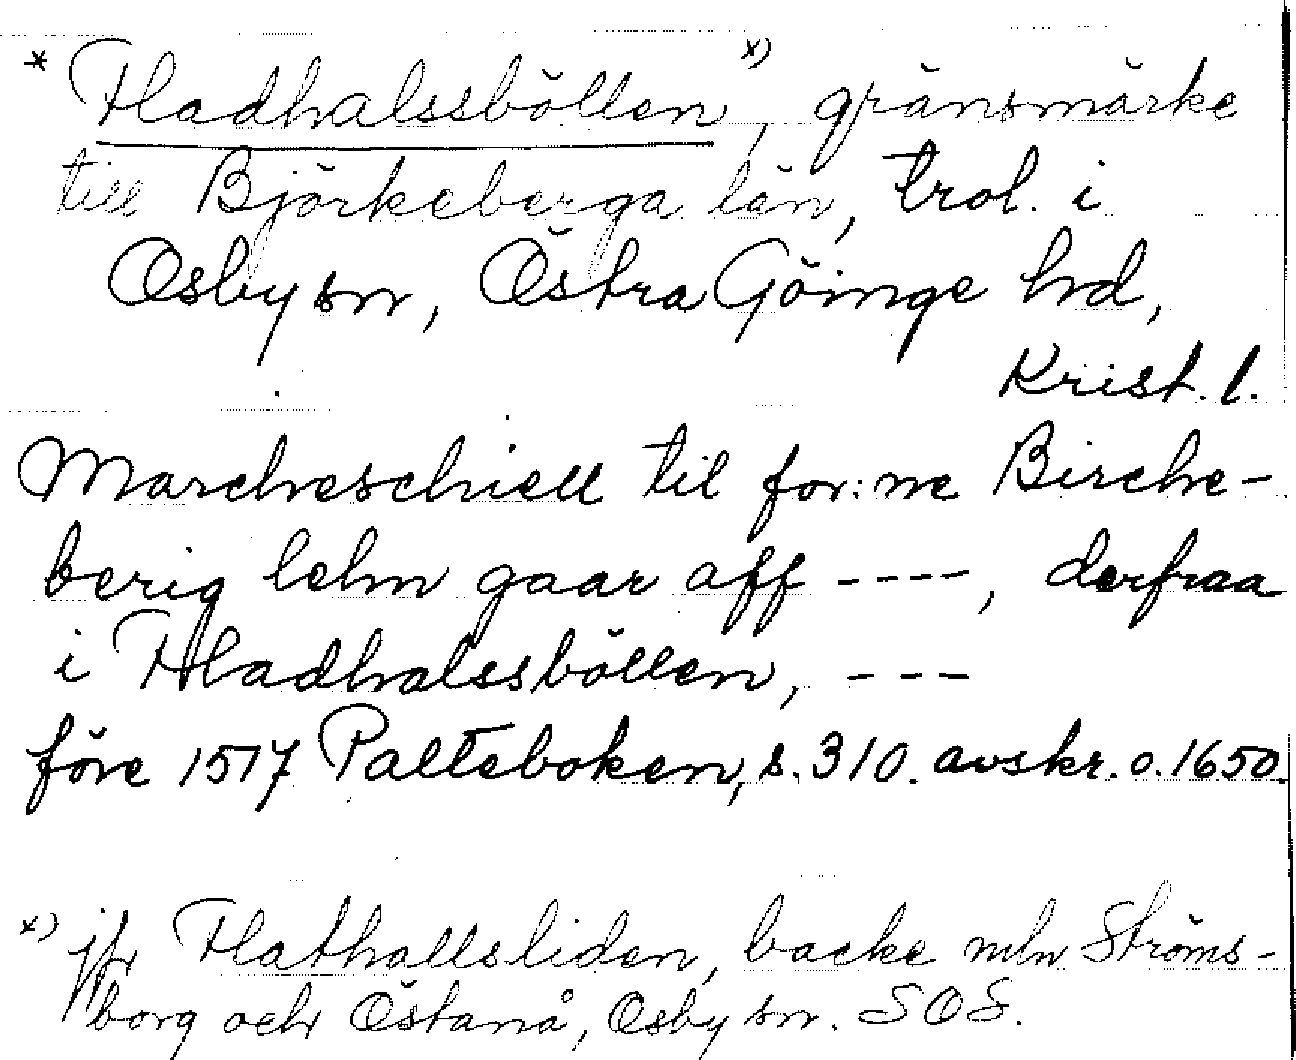 * Fladhalssböllen x), gränsmärke
till Björkeberga län, trol. i
Osby sn, Östra Göinge hd,
Krist. l.
Marcheschiell til for:ne Birche-
berig lehn gaar aff ----, derfraa
i Fladhalssböllen, ---
före 1517 Palteboken, s. 310. avskr. o. 1650.
x) jfr Flathallsliden, backe mln Ströms-
borg och Östanå, Osby sn. SOS.